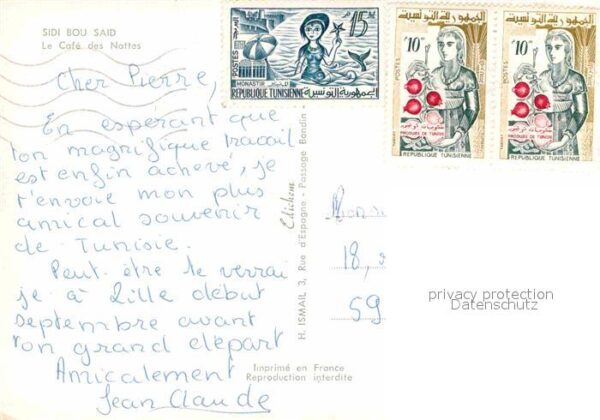 SIDI BOU SAID
Le Café des Nattes
Cher Pierre,
En espérant que
ton magnifique travail
est enfin achevé, je
t'envoie mon plus
amical souvenir
de Tunisie.
Peut être te verrai
je à Lille début
septembre avant
ton grand départ
Amicalement
Jean Claude
H. ISMAIL 3, Rue d'Espagne - Passage Bondin
Imprimé en France
Reproduction interdite
POSTES
15
MONASTIR
المنستير
REPUBLIQUE TUNISIENNE الجمهورية التونسية
الجمهورية التونسية
10
POSTES
PRODUITS DE TUNISIE
REPUBLIQUE TUNISIENNE
الجمهورية التونسية
10
POSTES
PRODUITS DE TUNISIE
REPUBLIQUE TUNISIENNE
18,
59
privacy protection
Datenschutz